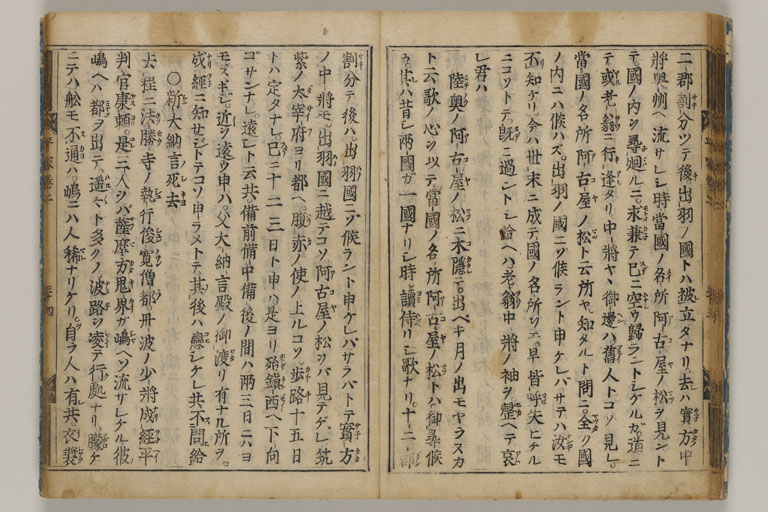 二郡割分ツテ後出羽ノ国トハ被立タナリ去ハ實方中
將奥州ヘ流サレシ時當國ノ名所阿古屋ノ松ヲ見ント
テ國ノ内ヲ尋廻ルニ求兼テ已ニ空ウ歸ラントシケルガ道ニ
テ或老翁ニ行逢タリ中將ヤヽ御邊ハ舊人トコソ見レ
當國ノ名所阿古屋ノ松ト云所ヤ知タルト問ニ全ク國
ノ内ニハ候ハズ出羽ノ國ニゾ候ラント申ケレバサテハ汝モ
不知ケリ今ハ世末ニ成テ國ノ名所ヲモ早皆呼失ヒケル
ニコソトテ既ニ過ントシ給ヘハ老翁中將ノ袖ヲ磬ヘテ哀
レ君ハ
陸奥ノ阿古屋ノ松ニ木隠テ出ベキ月ノ出モヤラヌカ
ト云歌ノ心ヲ以テ當國ノ名所阿古屋ノ松トハ御尋候
カ其ハ昔シ兩國ガ一國ナリシ時讀侍リシ歌ナリ十二郡
割分テ後ハ出羽國ニヤ候ラント申ケレバサラバトテ實方
ノ中將モ出羽國ニ越テコソ阿古屋ノ松ヲバ見テゲレ筑
紫ノ太宰府ヨリ都ヘ腹赤ノ使ノ上ルコソ歩路十五日
トハ定タナレ已ニ十二三日ト申ハ是ヨリ殆鎮西ヘ下向
ゴサンナレ遠シト云共備前備中備後ノ間ハ兩三日ニハヨ
モスギジ近ヲ遠ウ申ハ父大納言殿ノ御渡リ有ナル所ヲ
成經ニ知セジトテコソ申ラメトテ其後ハ戀シケレ共不問給
〇新大納言死去
去程ニ法勝寺ノ執行俊寛僧都丹波ノ少將成經平
判官康頼是三人ヲバ薩摩方鬼界ガ嶋ヘゾ流サレケル彼
嶋ヘハ都ヲ出テ遥々ト多クノ波路ヲ凌テ行処ナリ朧ケ
ニテハ舩モ不通ハ嶋ニハ人稀ナリケリ自ラ人ハ有共衣裳